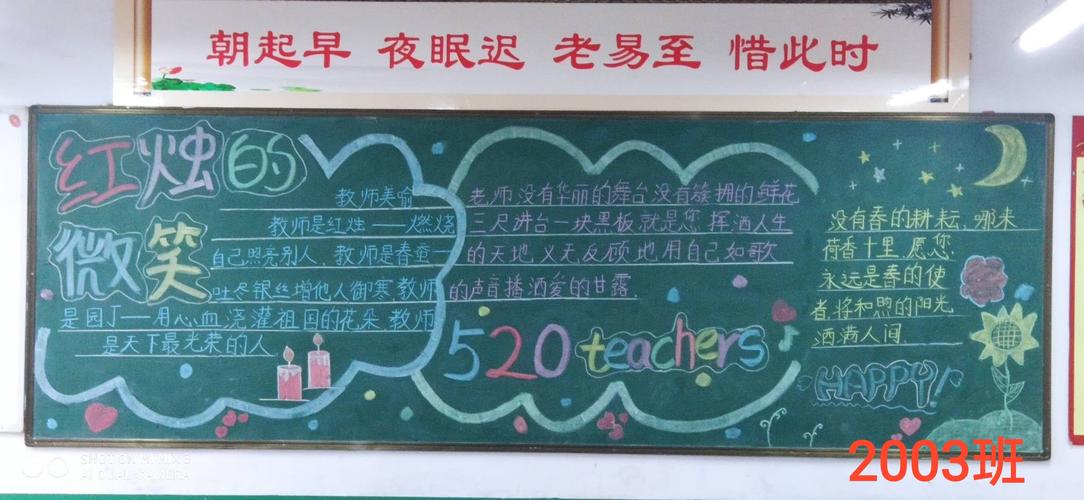 朝起早 夜眠迟 老易至 惜此时
红烛的
微笑
教师美喻
教师是红烛——燃烧
自己照亮别人,教师是春蚕—
吐冬银丝增他人御寒,教师
是园丁——用心血浇灌祖国的花朵,教师
是天下最光荣的人
老师没有华丽的舞台没有簇拥的鲜花
三尺讲台一块黑板就是您挥洒人生
的天地,义无反顾地用自己如歌
的声音播洒爱的甘露.
520 teachers
没有春的耕耘,哪来
荷香十里.愿您
永远是春的使
者,将和煦的阳光
洒满人间
HAPPY!
2003班
SHOT ON MI MIX 2S
AI DUAL CAMERA